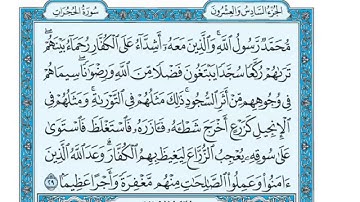 الجزء السادس والعشرون
سورة الحجرات
مُّحَمَّدٌ رَّسُولُ ٱللَّهِ ۚ وَٱلَّذِينَ مَعَهُۥٓ أَشِدَّآءُ عَلَى ٱلْكُفَّارِ رُحَمَآءُ بَيْنَهُمْ ۖ
تَرَىٰهُمْ رُكَّعًا سُجَّدًا يَبْتَغُونَ فَضْلًا مِّنَ ٱللَّهِ وَرِضْوَٰنًا ۖ سِيمَاهُمْ
فِى وُجُوهِهِم مِّنْ أَثَرِ ٱلسُّجُودِ ۚ ذَٰلِكَ مَثَلُهُمْ فِى ٱلتَّوْرَىٰةِ ۚ وَمَثَلُهُمْ فِى
ٱلْإِنجِيلِ كَزَرْعٍ أَخْرَجَ شَطْـَٔهُۥ فَـَٔازَرَهُۥ فَٱسْتَغْلَظَ فَٱسْتَوَىٰ
عَلَىٰ سُوقِهِۦ يُعْجِبُ ٱلزُّرَّاعَ لِيَغِيظَ بِهِمُ ٱلْكُفَّارَ ۗ وَعَدَ ٱللَّهُ ٱلَّذِينَ
ءَامَنُوا۟ وَعَمِلُوا۟ ٱلصَّٰلِحَٰتِ مِنْهُم مَّغْفِرَةً وَأَجْرًا عَظِيمًۢا ٢٩